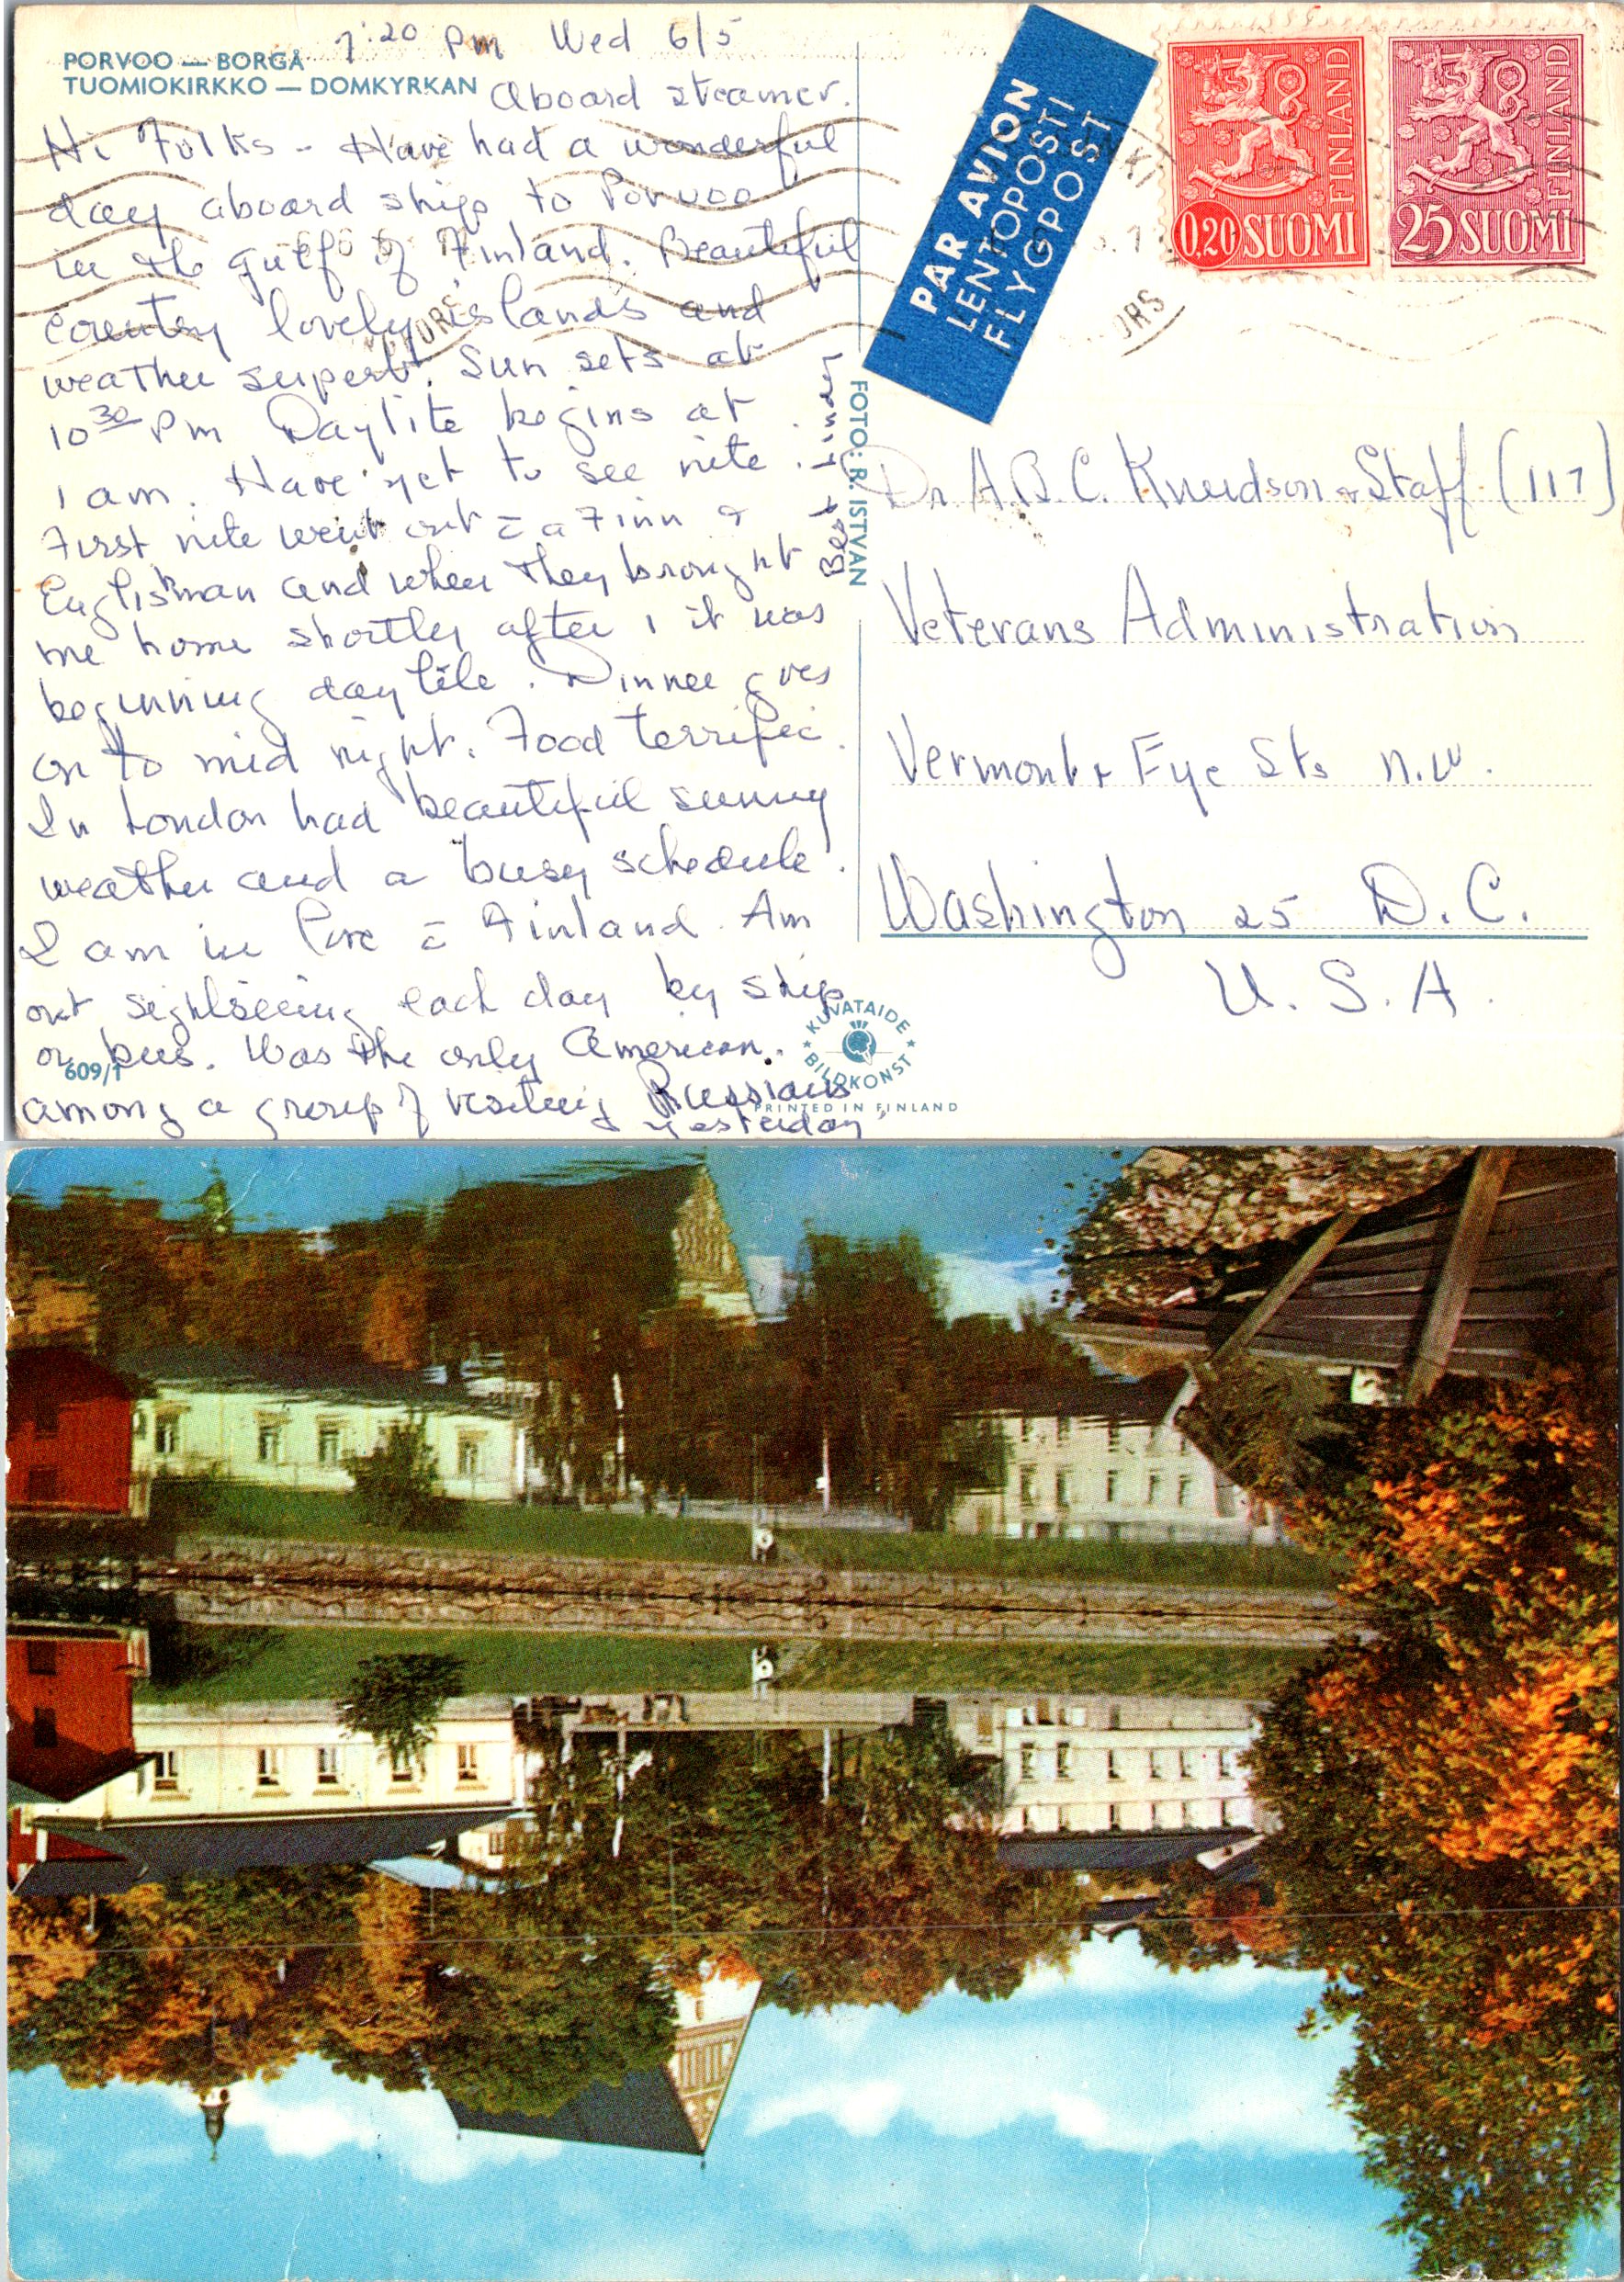 PORVOO — BORGÅ
TUOMIOKIRKKO — DOMKYRKAN
7:20 pm Wed 6/5
Aboard steamer.
Hi Folks - Have had a wonderful
day aboard ship to Porvoo
in the gulf of Finland. Beautiful
country lovely islands and
weather superb. Sun sets at
10 30 pm Daylite begins at
1 am. Have yet to see nite.
First nite went out c̄ a Finn &
Englishman and when they brought
me home shortly after 1 it was
beginning daylite. Dinner goes
on to mid night. Food terrific.
In London had beautiful sunny
weather and a busy schedule.
I am in love c̄ Finland. Am
out sightseeing each day by ship
or bus. Was the only American
among a group of visiting Russians
yesterday
Best
609/1
FOTO: R. ISTVAN
PAR AVION
LENTOPOSTI
FLYGPOST
FINLAND
0,20 SUOMI
FINLAND
25 SUOMI
Dr A.B.C. Knudson & Staff (117)
Veterans Administration
Vermont & Eye Sts n.w.
Washington 25 D.C.
U.S.A.
KUVATAIDE
BILDKONST
PRINTED IN FINLAND